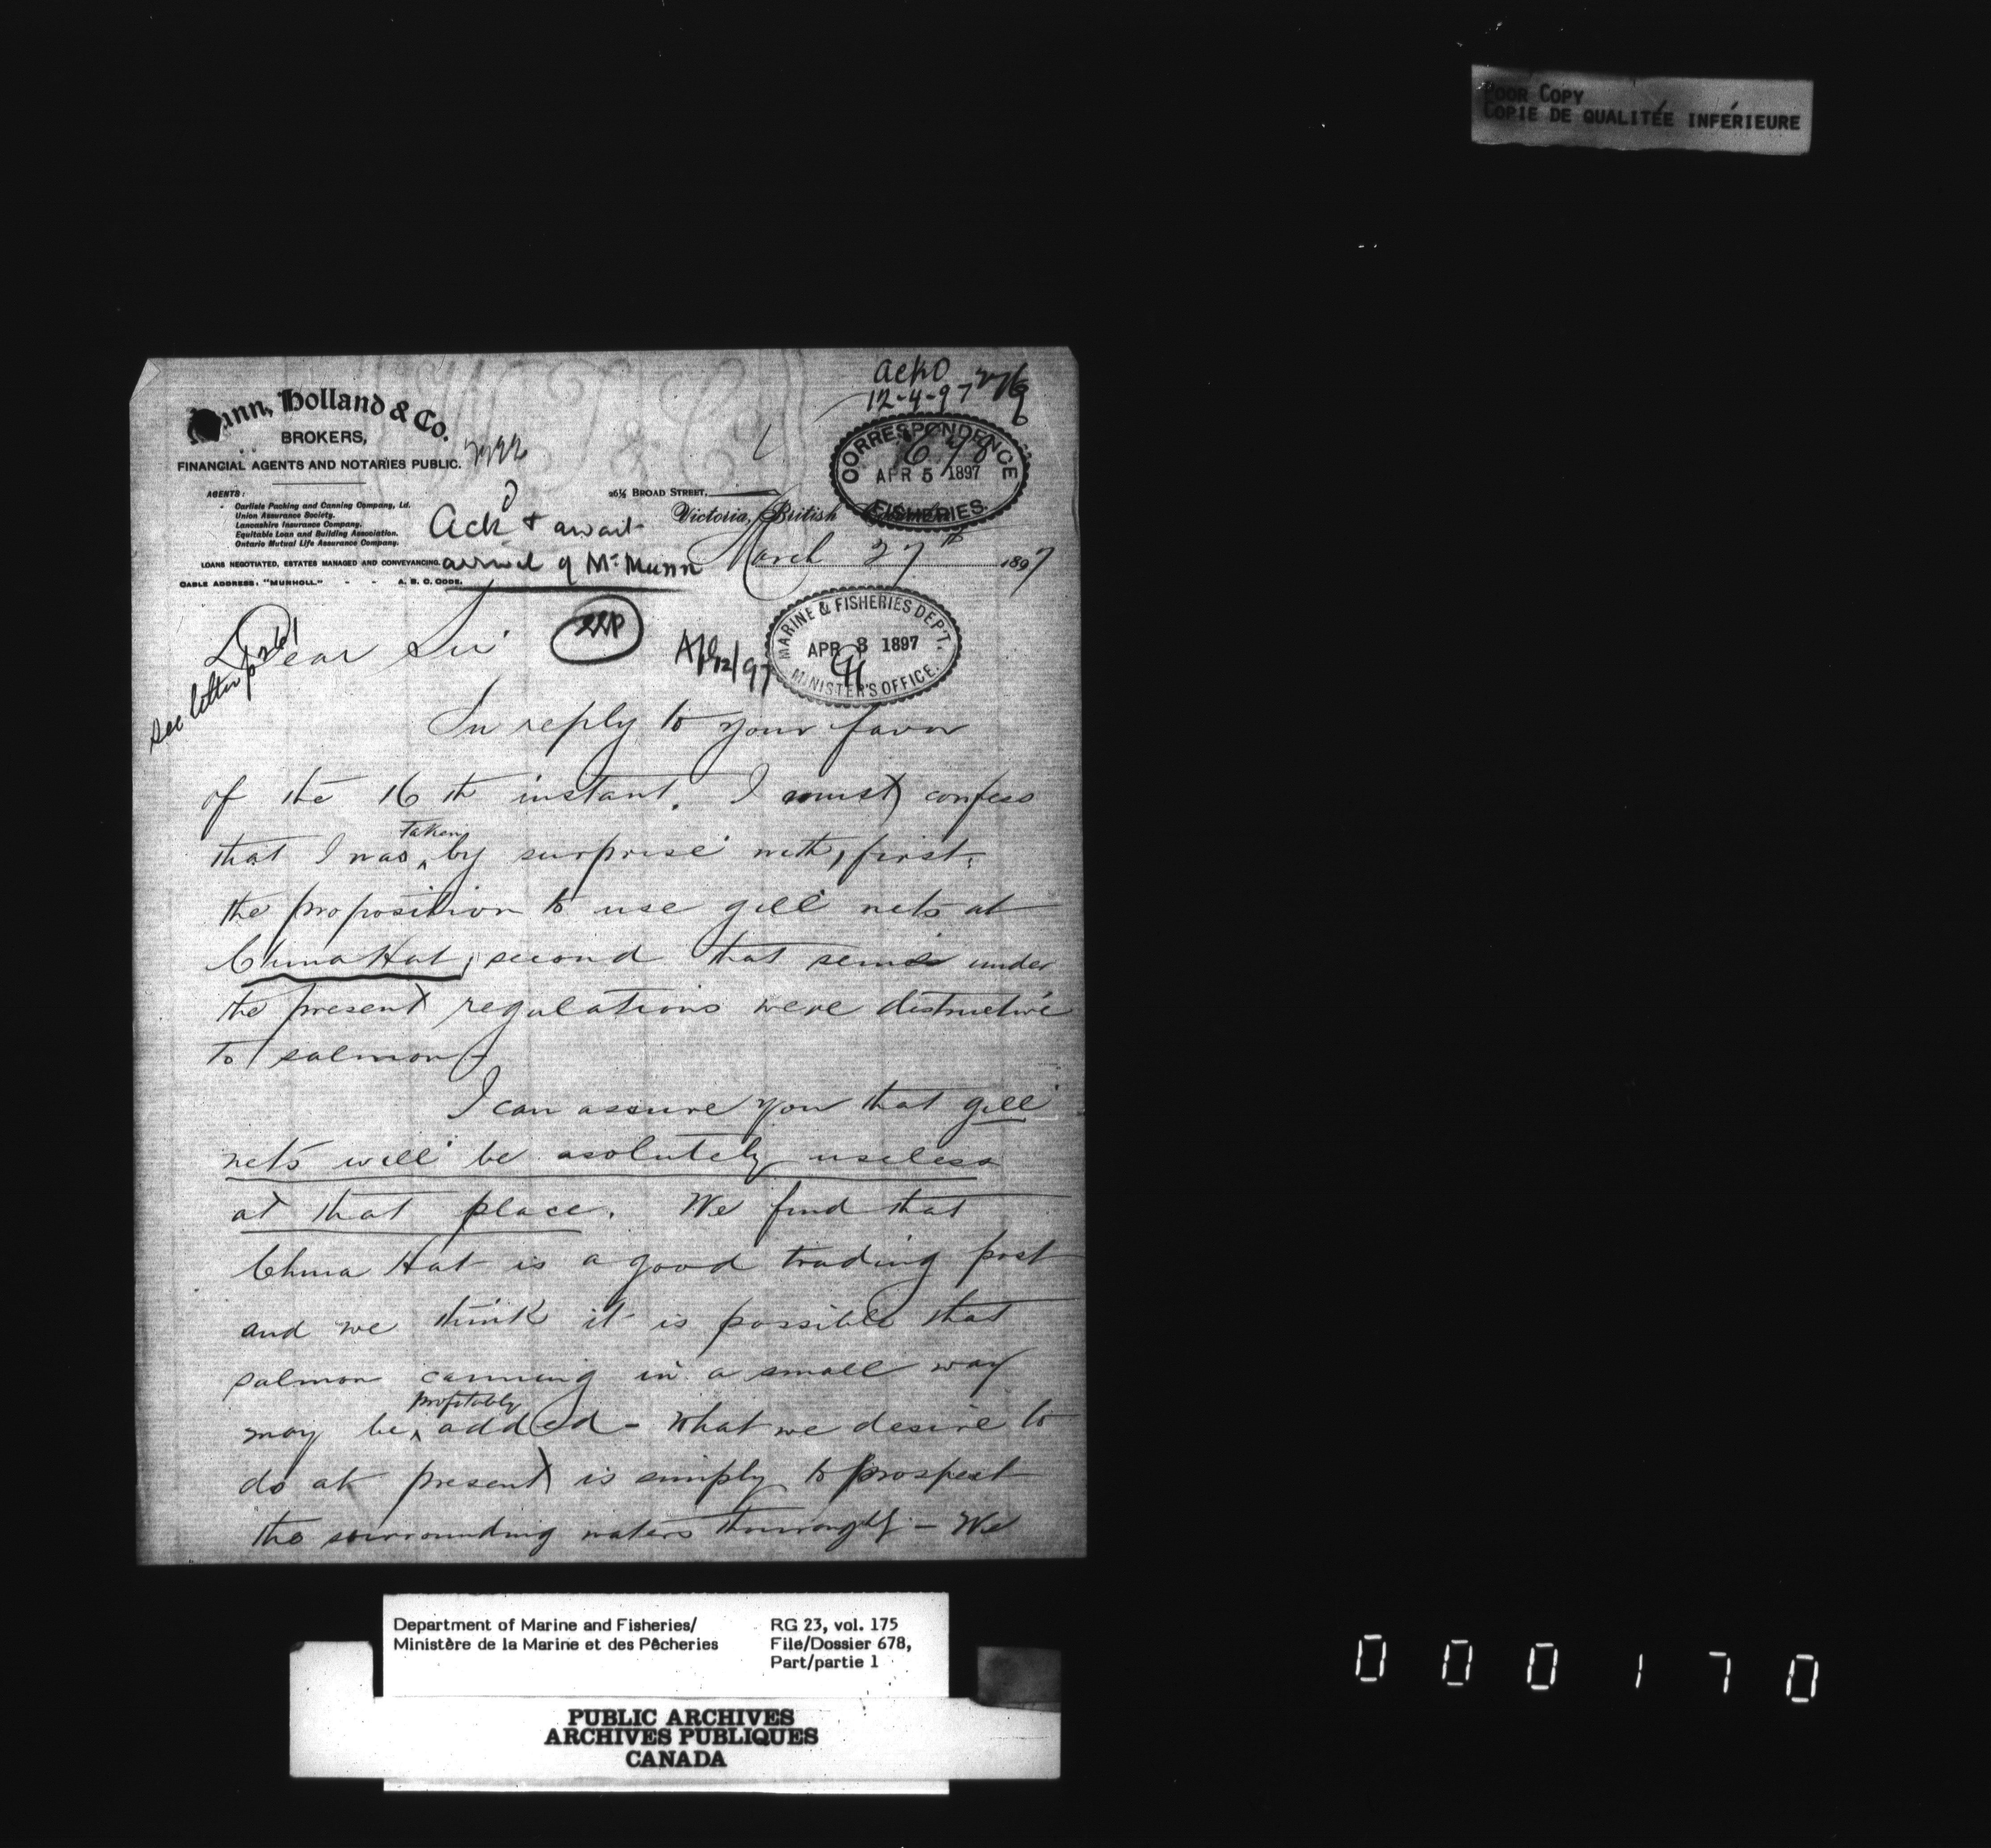 POOR COPY
COPIE DE QUALITÉE INFÉRIEURE
ackd
12-4-97
Munn, Holland & Co.
BROKERS,
FINANCIAL AGENTS AND NOTARIES PUBLIC.
AGENTS:
Carlisle Packing and Canning Company, Ld.
Union Assurance Society.
Lancashire Insurance Company.
Equitable Loan and Building Association.
Ontario Mutual Life Assurance Company.
LOANS NEGOTIATED, ESTATES MANAGED AND CONVEYANCING.
CABLE ADDRESS: "MUNHOLL" - - A. B. C. CODE.
CORRESPONDENCE
678
APR 5 1897
FISHERIES.
26½ BROAD STREET,
Victoria, British
March 27th 1897
Ackd & await
arrival of Mr Munn
MARINE & FISHERIES DEP'T.
APR 8 1897
MINISTER'S OFFICE.
Apl 12/97
See letter p 261
Dear Sir
In reply to your favor
of the 16th instant. I must confess
that I was taken by surprise with, first,
the proposition to use gill nets at
China Hat, second that seines under
the present regulations were distructive
to salmon -
I can assure you that gill
nets will be asolutely useless
at that place. We find that
China Hat is a good trading post
and we think it is possible that
salmon canning in a small way
may be profitably added - What we desire to
do at present is simply to prospect
the surrounding waters thoroughly - We
Department of Marine and Fisheries/
Ministère de la Marine et des Pêcheries
RG 23, vol. 175
File/Dossier 678,
Part/partie 1
PUBLIC ARCHIVES
ARCHIVES PUBLIQUES
CANADA
000170